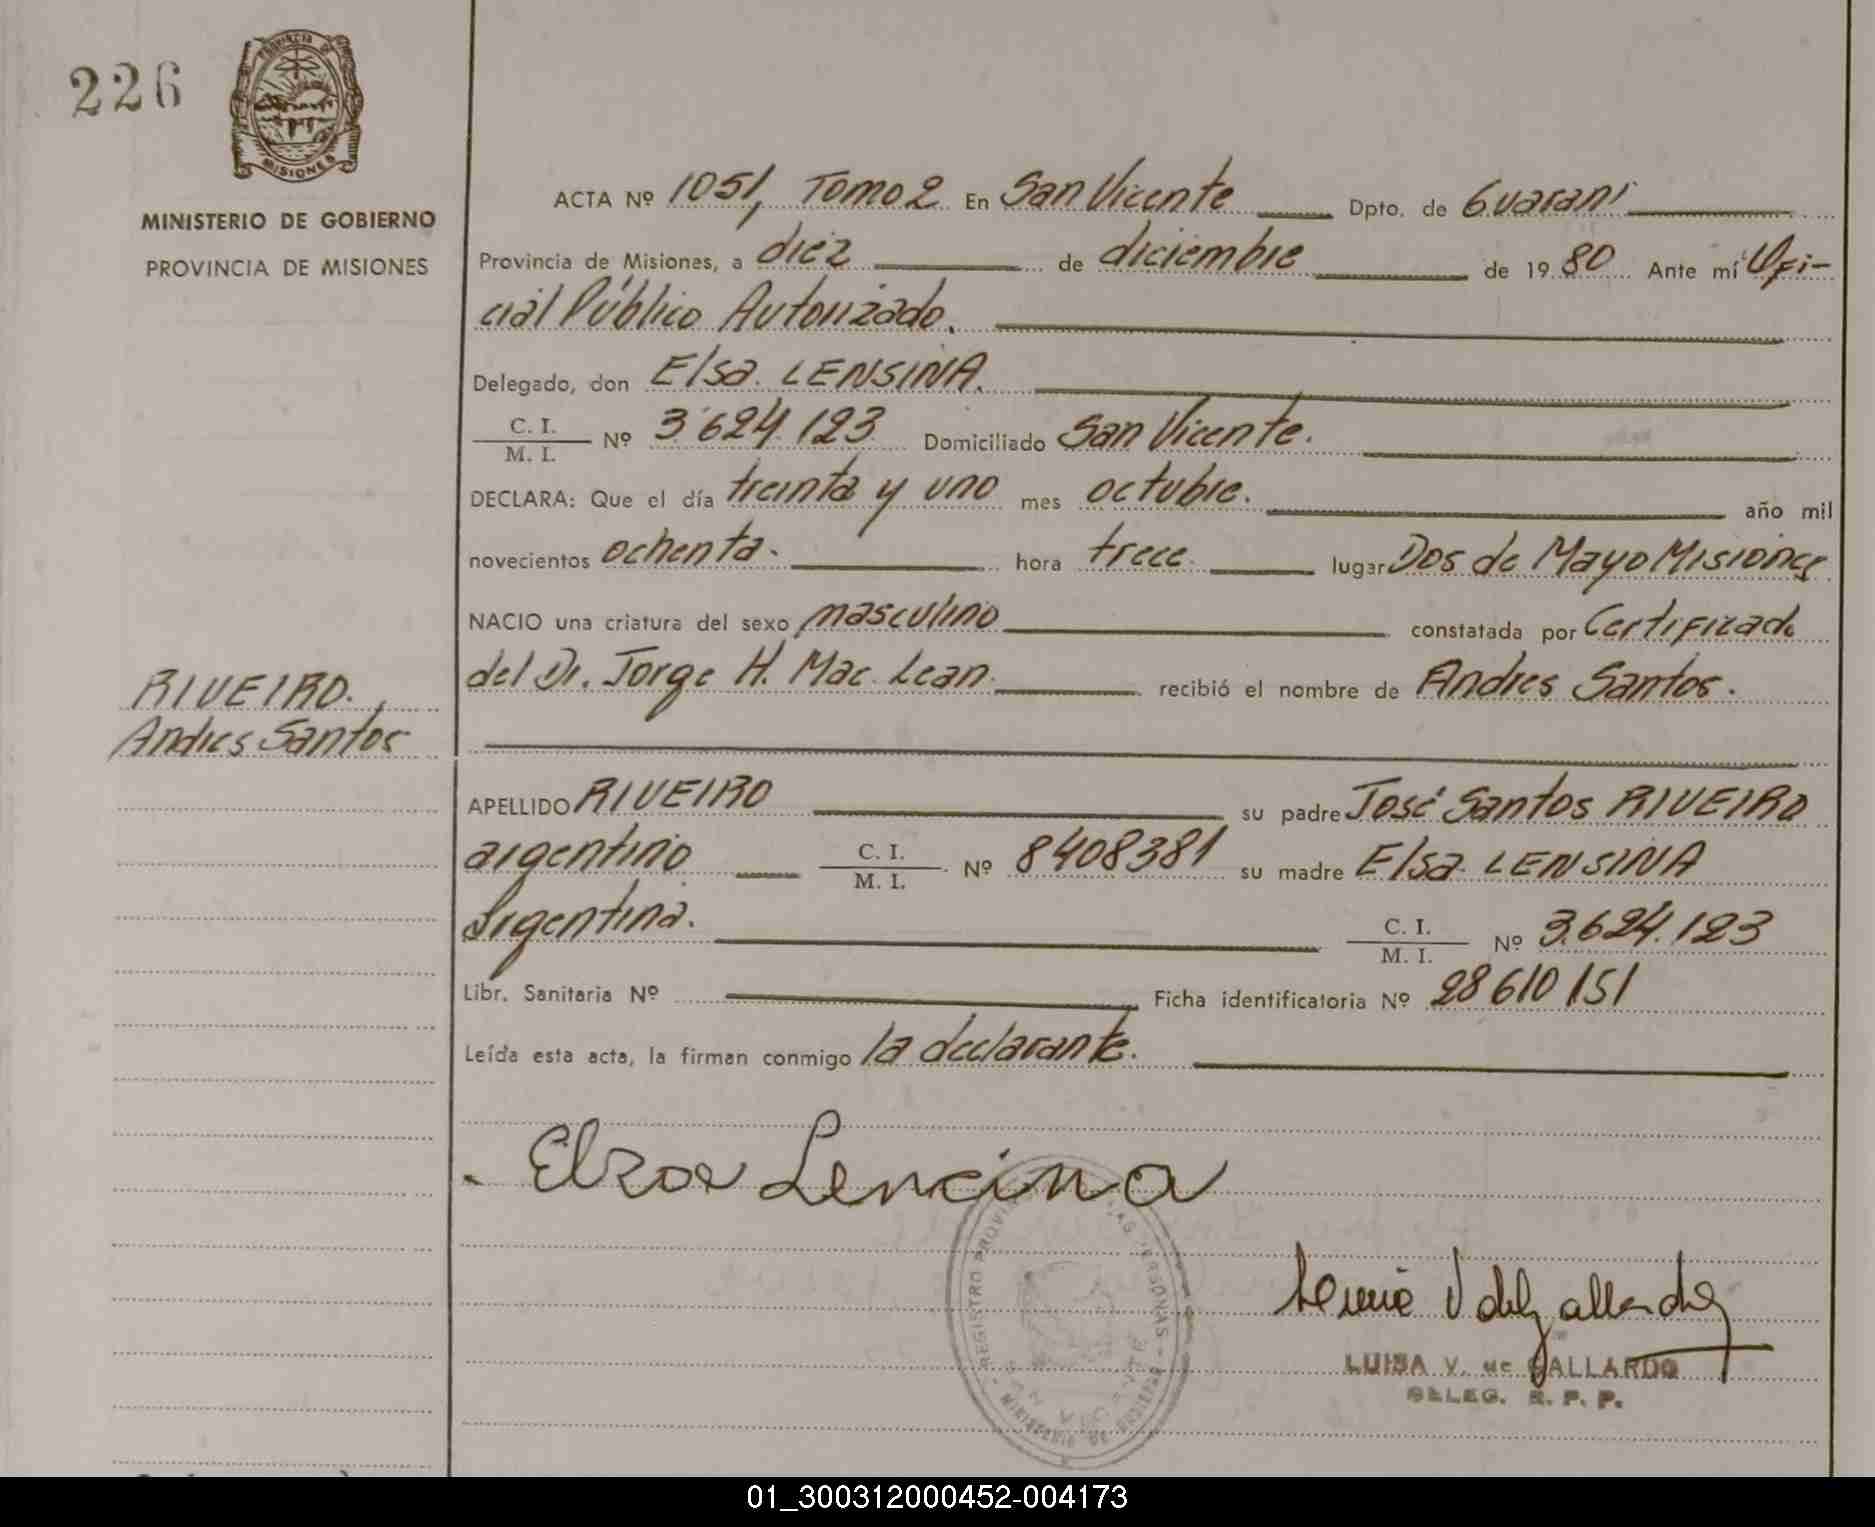 226
PROVINCIA DE
MISIONES
MINISTERIO DE GOBIERNO
PROVINCIA DE MISIONES
RIVEIRO,
Andres Santos
ACTA Nº 1051, Tomo 2 En San Vicente Dpto. de Guaraní
Provincia de Misiones, a diez de diciembre de 1980 Ante mí Ofi-
cial Público Autorizado.
Delegado, don Elsa LENSINA.
C. I.
M. I. Nº 3.624.123 Domiciliado San Vicente.
DECLARA: Que el día treinta y uno mes octubre. año mil
novecientos ochenta. hora trece. lugar Dos de Mayo Misiones
NACIO una criatura del sexo masculino constatada por Certificado
del Dr. Jorge H. Mac Lean. recibió el nombre de Andres Santos.
APELLIDO RIVEIRO su padre José Santos RIVEIRO
argentino C. I. M. I. Nº 8408381 su madre Elsa LENSINA
argentina. C. I. M. I. Nº 3.624.123
Libr. Sanitaria Nº Ficha identificatoria Nº 28610151
Leída esta acta, la firman conmigo la declarante.
Elzoe Lencina
REGISTRO PERSONAS - MINISTERIO DE
LUISA V. de GALLARDO
DELEG. R. P. P.
01_300312000452-004173